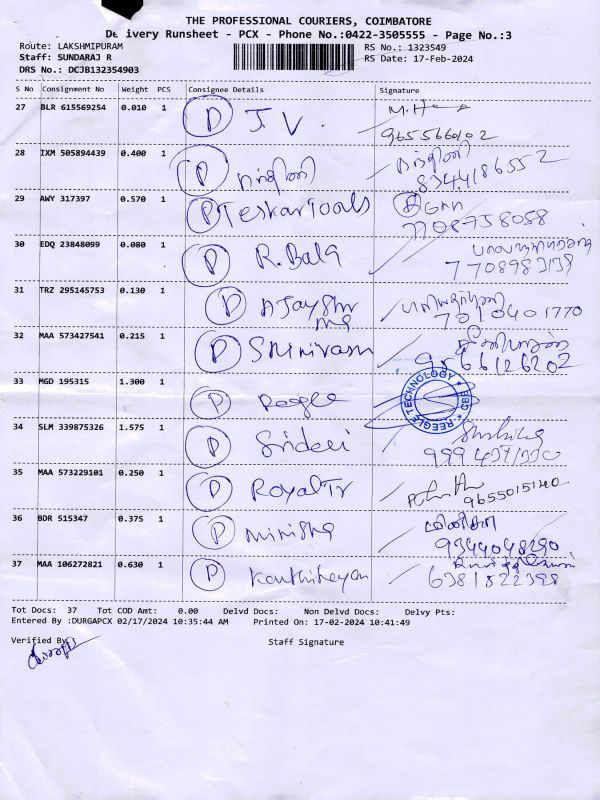 THE PROFESSIONAL COURIERS, COIMBATORE
Delivery Runsheet - PCX - Phone No.:0422-3505555 - Page No.:3
Route: LAKSHMIPURAM
Staff: SUNDARAJ R
DRS No.: DCJB132354903
RS No.: 1323549
RS Date: 17-Feb-2024
S No Consignment No Weight PCS Consignee Details Signature
27 BLR 615569254 0.010 1 P J.V.
9655660102
28 IXM 505894439 0.400 1 P நந்தினி நந்தினி
8344186552
29 AWY 317397 0.570 1 P Teskartools
7708758058
30 EDQ 23848099 0.080 1 P R.Bala
31 TRZ 295145753 0.130 1 P
7010401770
32 MAA 573427541 0.215 1 P Srinivasan
9566126202
33 MGD 195315 1.300 1 P Reegle REEGLE TECHNOLOGY
34 SLM 339875326 1.575 1 P Sridevi
35 MAA 573229101 0.250 1 P RoyalTr
9655015140
36 BDR 515347 0.375 1 P Minisha
9344048290
37 MAA 106272821 0.630 1 P Karthikeyan
6381822398
Tot Docs: 37 Tot COD Amt: 0.00 Delvd Docs: Non Delvd Docs: Delvy Pts:
Entered By :DURGAPCX 02/17/2024 10:35:44 AM Printed On: 17-02-2024 10:41:49
Verified By
Staff Signature